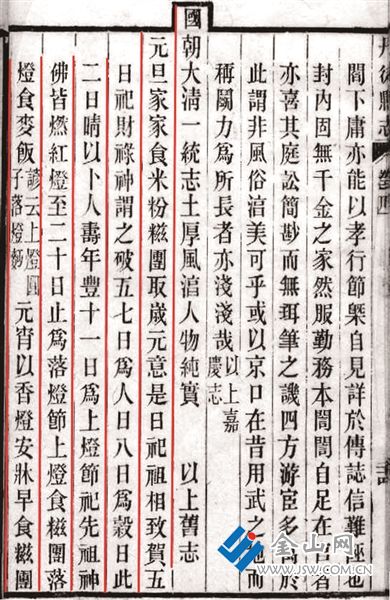 閭下庸亦能以孝行節槩自見詳於傳誌信難極也
封內固無千金之家然服勤務本誾誾自足在官者
亦喜其庭訟簡尠而無珥筆之譏四方游宦多於
此謂非風俗湻美可乎或以京口在昔用武之地而
稱鬭力爲所長者亦淺淺哉以上嘉慶志
國朝大清一統志土厚風湻人物純實 以上舊志
元旦家家食米粉糍團取歲元意是日祀祖相致賀五
日祀財祿神謂之破五七日爲人日八日爲穀日此
二日晴以卜人壽年豐十一日爲上燈節祀先祖神
佛皆燃紅燈至二十日止爲落燈節上燈食糍團落
燈食麥飯諺云上燈圓子落燈麪元宵以香燈安牀早食糍團
金山网
WWW.JSW.COM.CN